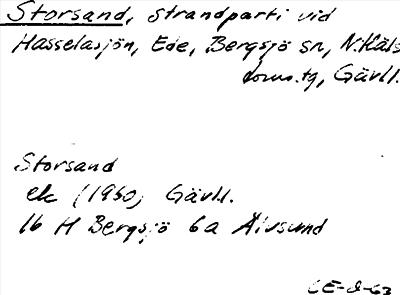 Storsand, strandparti vid
Hasselasjön, Ede, Bergsjö sn, N. Häls
Gävll.
Storsand
ek (1950) Gävll.
16 H Bergsjö 6a Älvsund